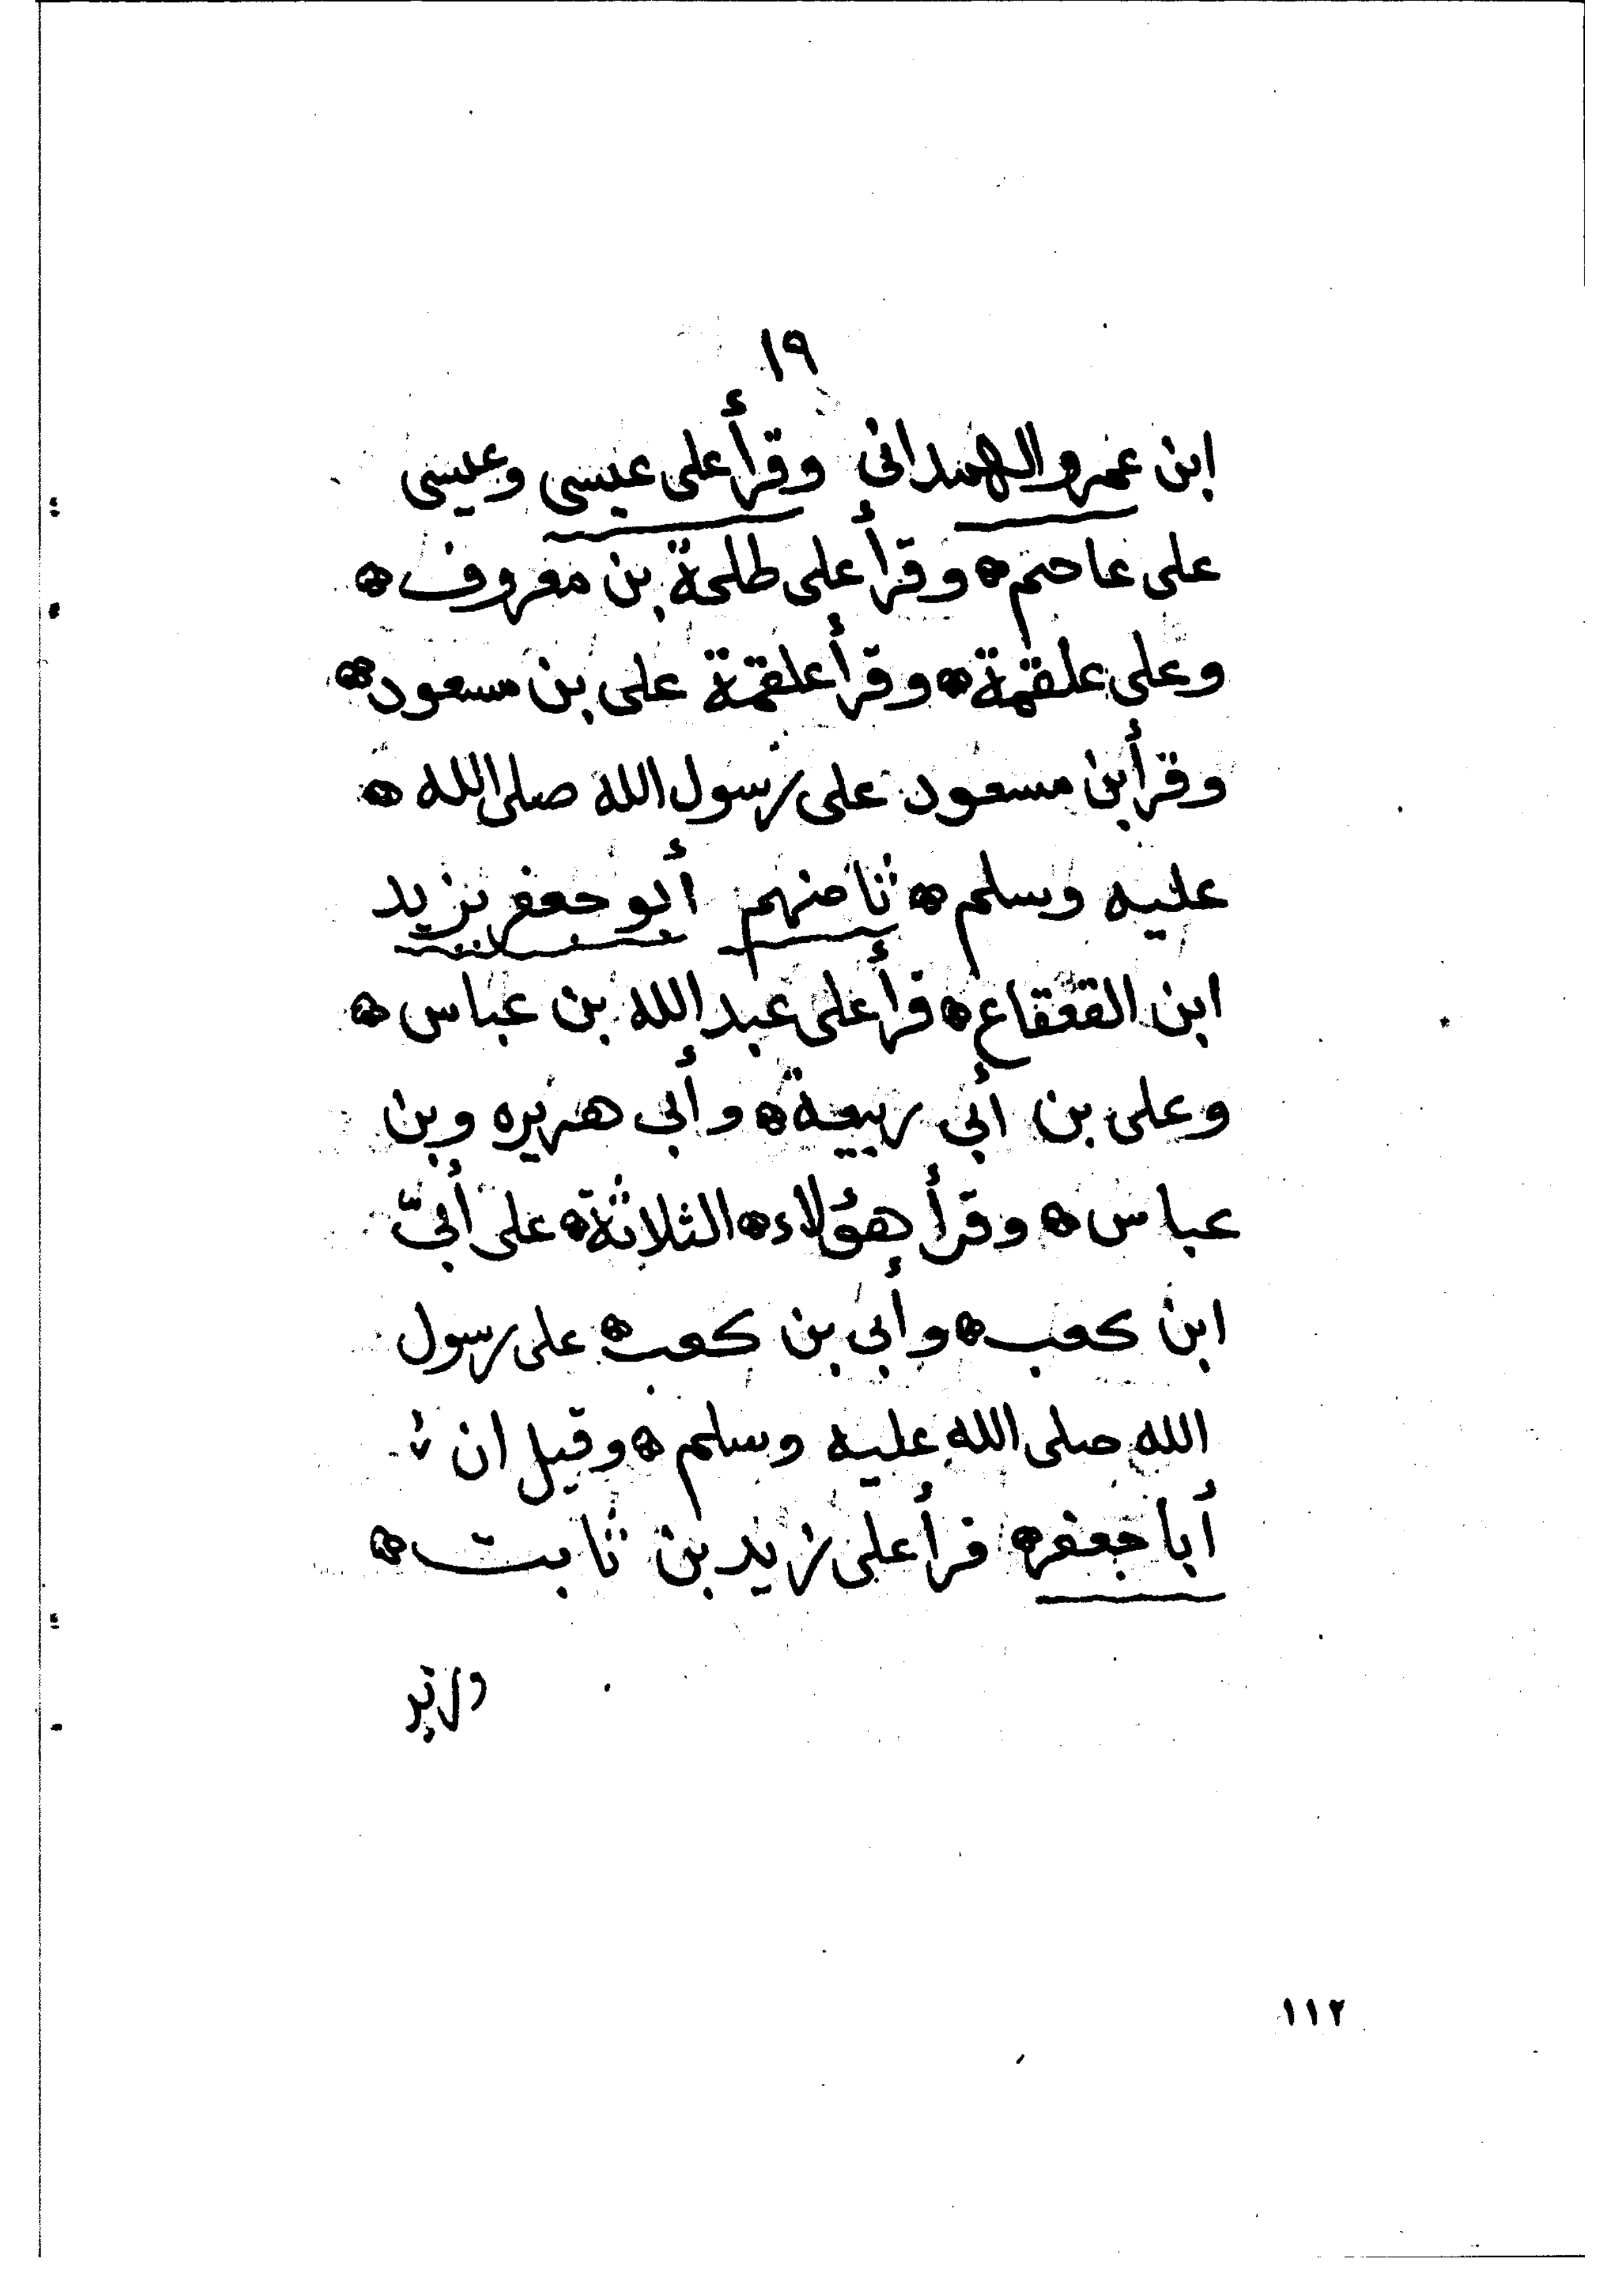 ١٩
ابن عمرو الهمدانى وقرأ على عيسى وعيسى
على عاصم ه وقرأ على طلحة بن معروف ه
وعلى علقمة ه وقرأ علقمة على بن مسعود ه
وقرأ بن مسعود على رسول الله صلى الله ه
عليه وسلم ه ثامنهم أبو جعفر يزيد
ابن القعقاع ه قرأ على عبد الله بن عباس ه
وعلى بن أبى ربيعة ه وأبى هريره وبن
عباس ه وقرأ هؤلاء ه الثلاثة ه على أبىّ
ابن كعب ه وأبى بن كعب ه على رسول
الله صلى الله عليه وسلم ه وقيل ان
أبا جعفر ه قرأ على زيد بن ثابت ه
١١٢